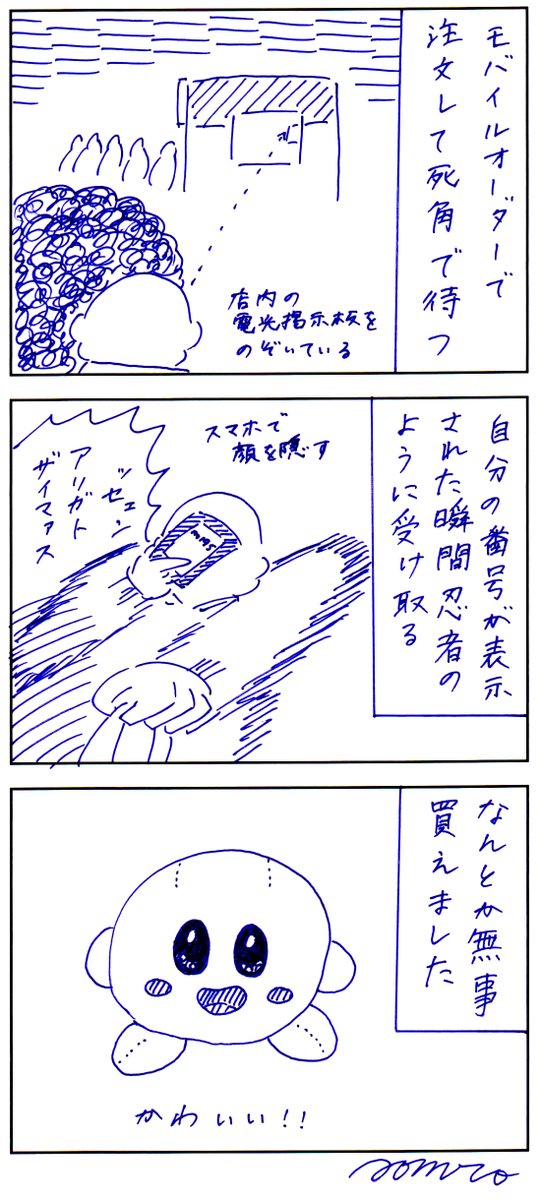 モバイルオーダーで
注文して死角で待つ
店内の
電光掲示板を
のぞいている
自分の番号が表示
された瞬間忍者の
ように受け取る
スマホで
顔を隠す
ッセェン
アリガト
ザイマァス
なんとか無事
買えました
かわいい!!